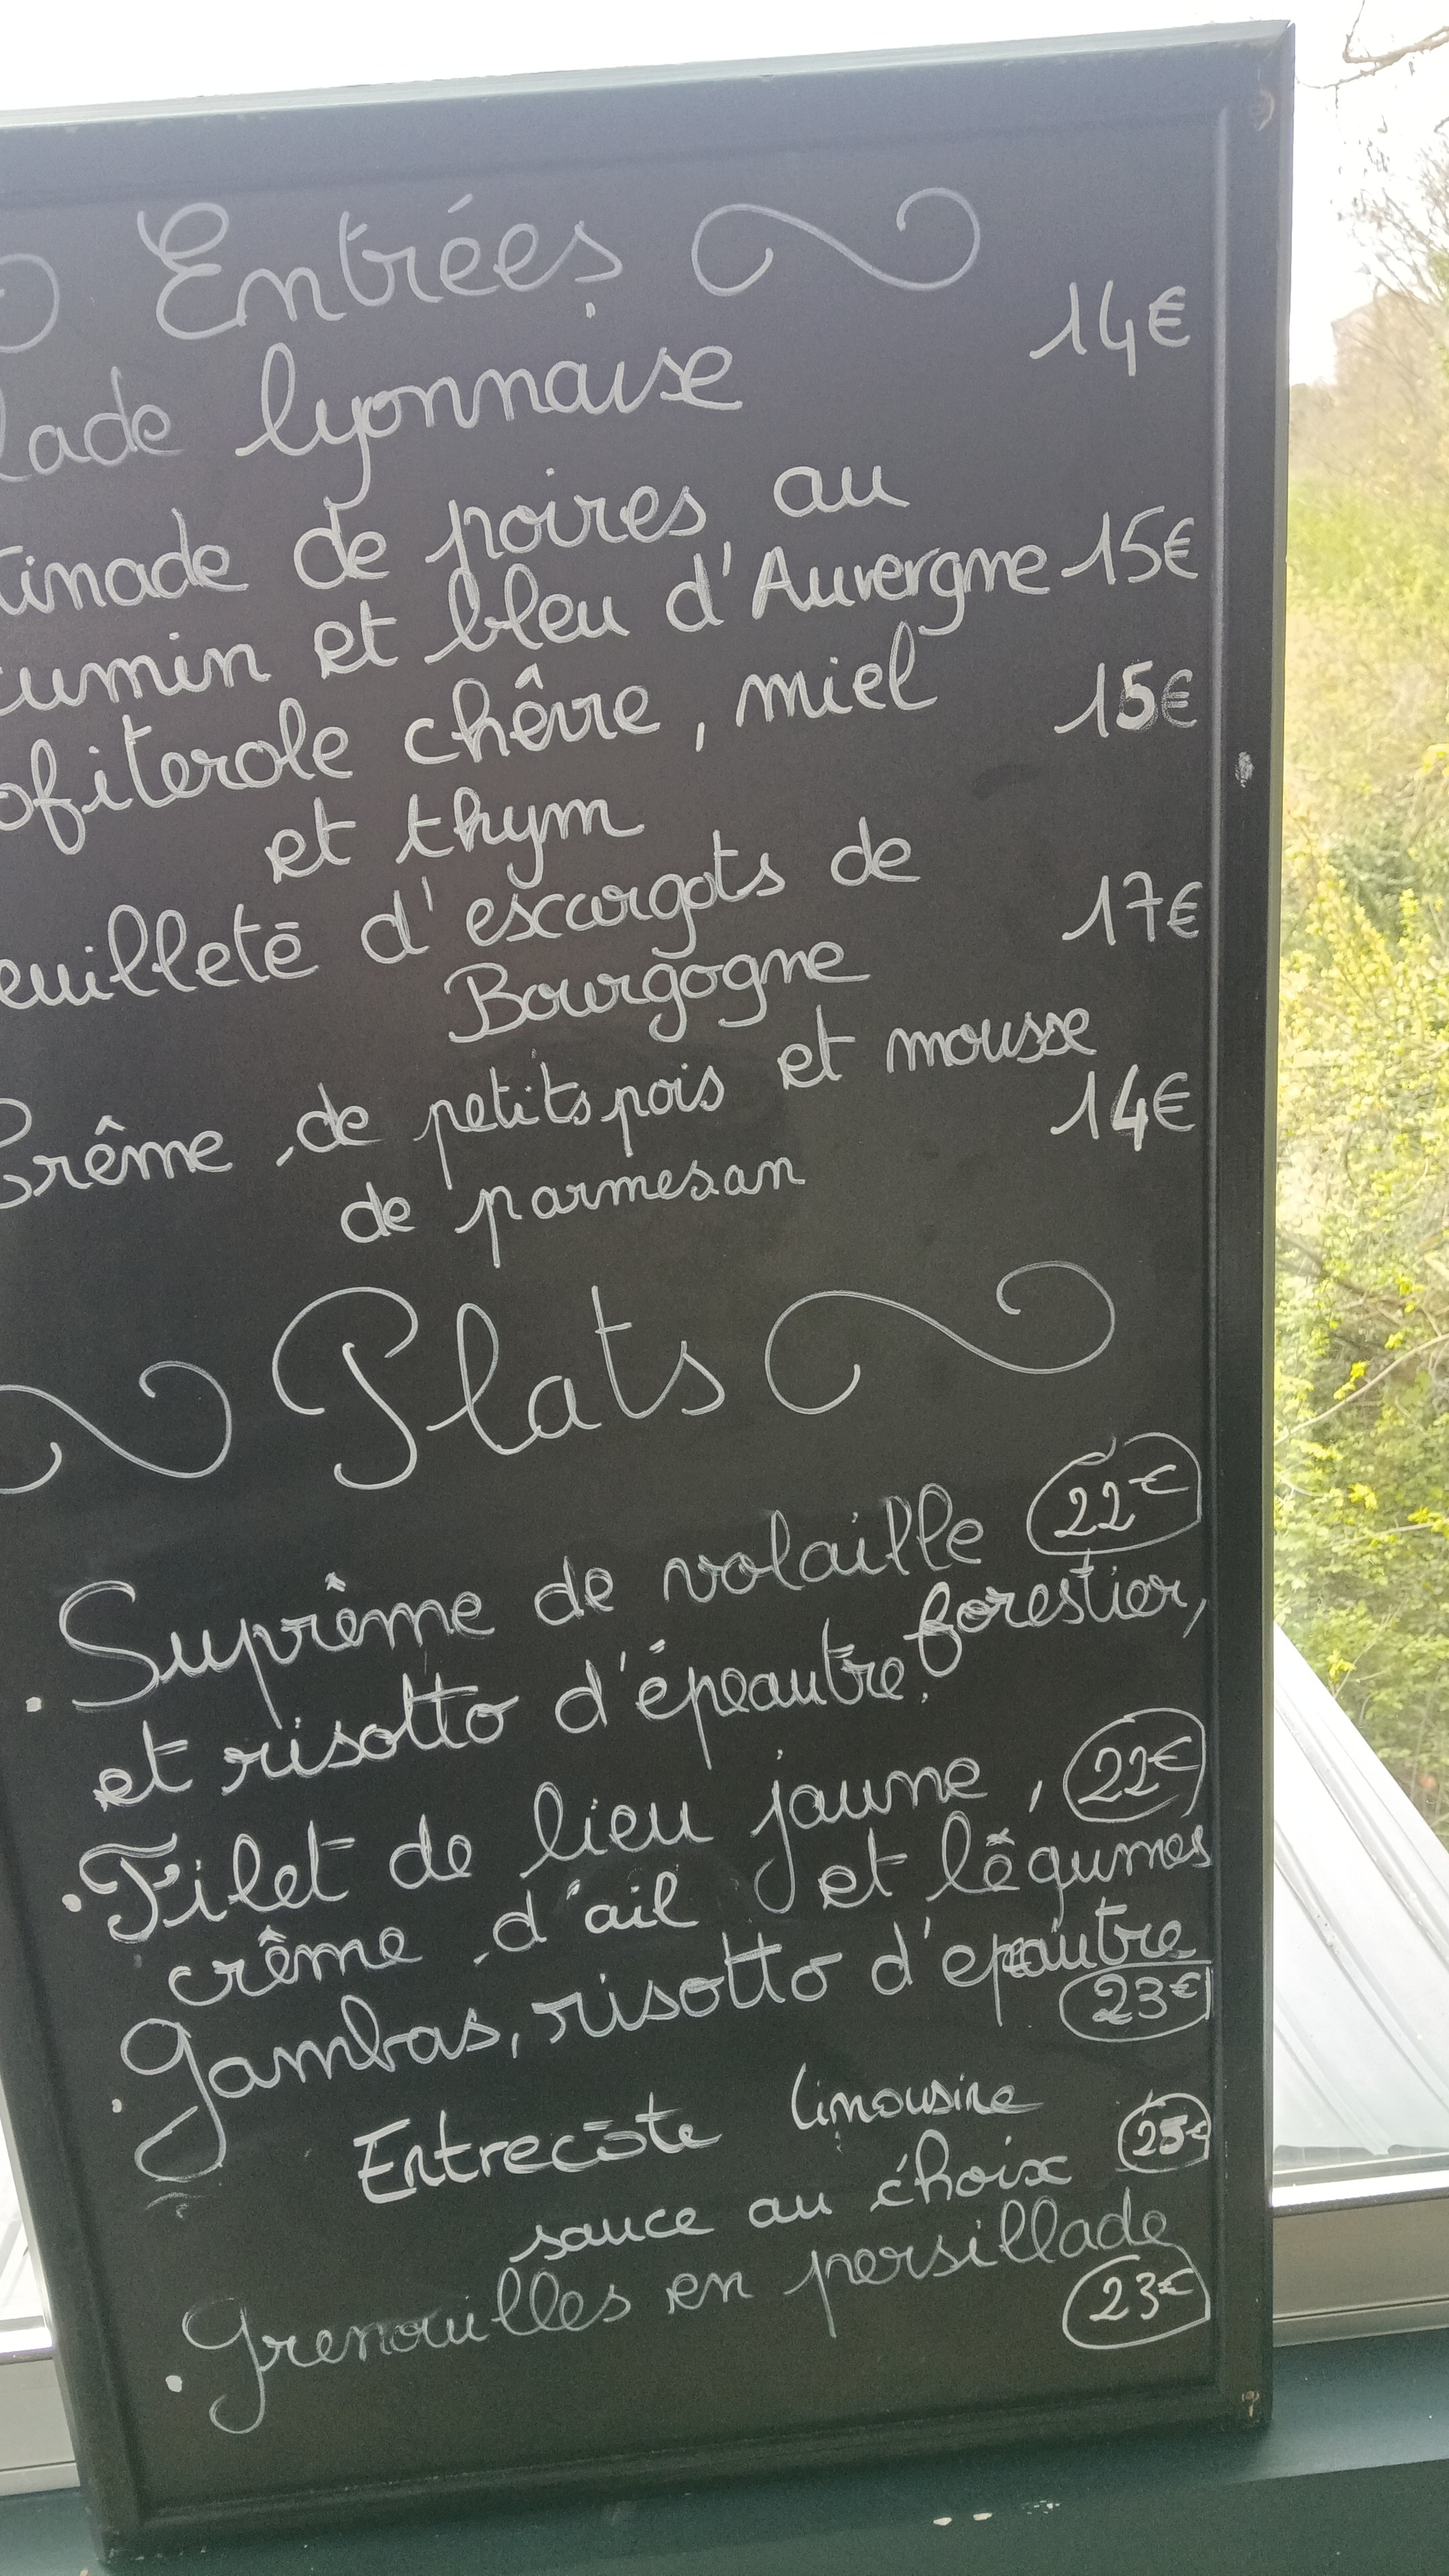 Entrées
lade lyonnaise 14€
tinade de poires au
cumin et bleu d'Auvergne 15€
ofiterole chêvre, miel 15€
et thym
euilleté d'escargots de
Bourgogne 17€
Crême de petits pois et mousse
de parmesan 14€
Plats
. Suprême de volaille 22€
et risotto d'épeautre forestier,
. Filet de lieu jaune, 22€
crême d'ail et légumes
. Gambas, risotto d'epeautre
23€
Entrecôte limousine
sauce au choix 25€
. Grenouilles en persillade
23€